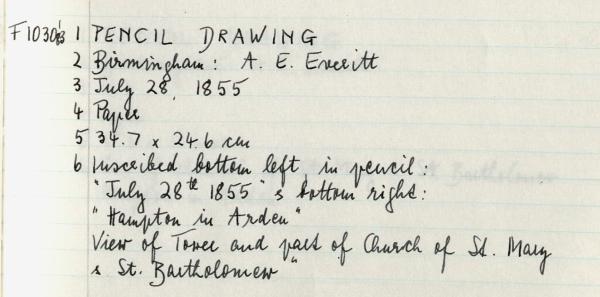 F1030'83 1 PENCIL DRAWING
2 Birmingham: A. E. Everitt
3 July 28, 1855
4 Paper
5 34.7 x 24.6 cm
6 Inscribed bottom left, in pencil:
"July 28th 1855" & bottom right:
"Hampton in Arden"
View of Tower and part of Church of St. Mary
& St. Bartholomew"